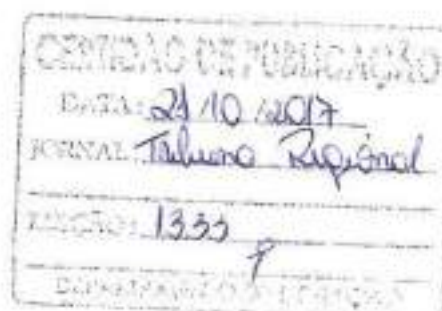 CERTIDÃO DE PUBLICAÇÃO
DATA: 21/10/2017
JORNAL: Tribuna Regional
EDIÇÃO: 1333